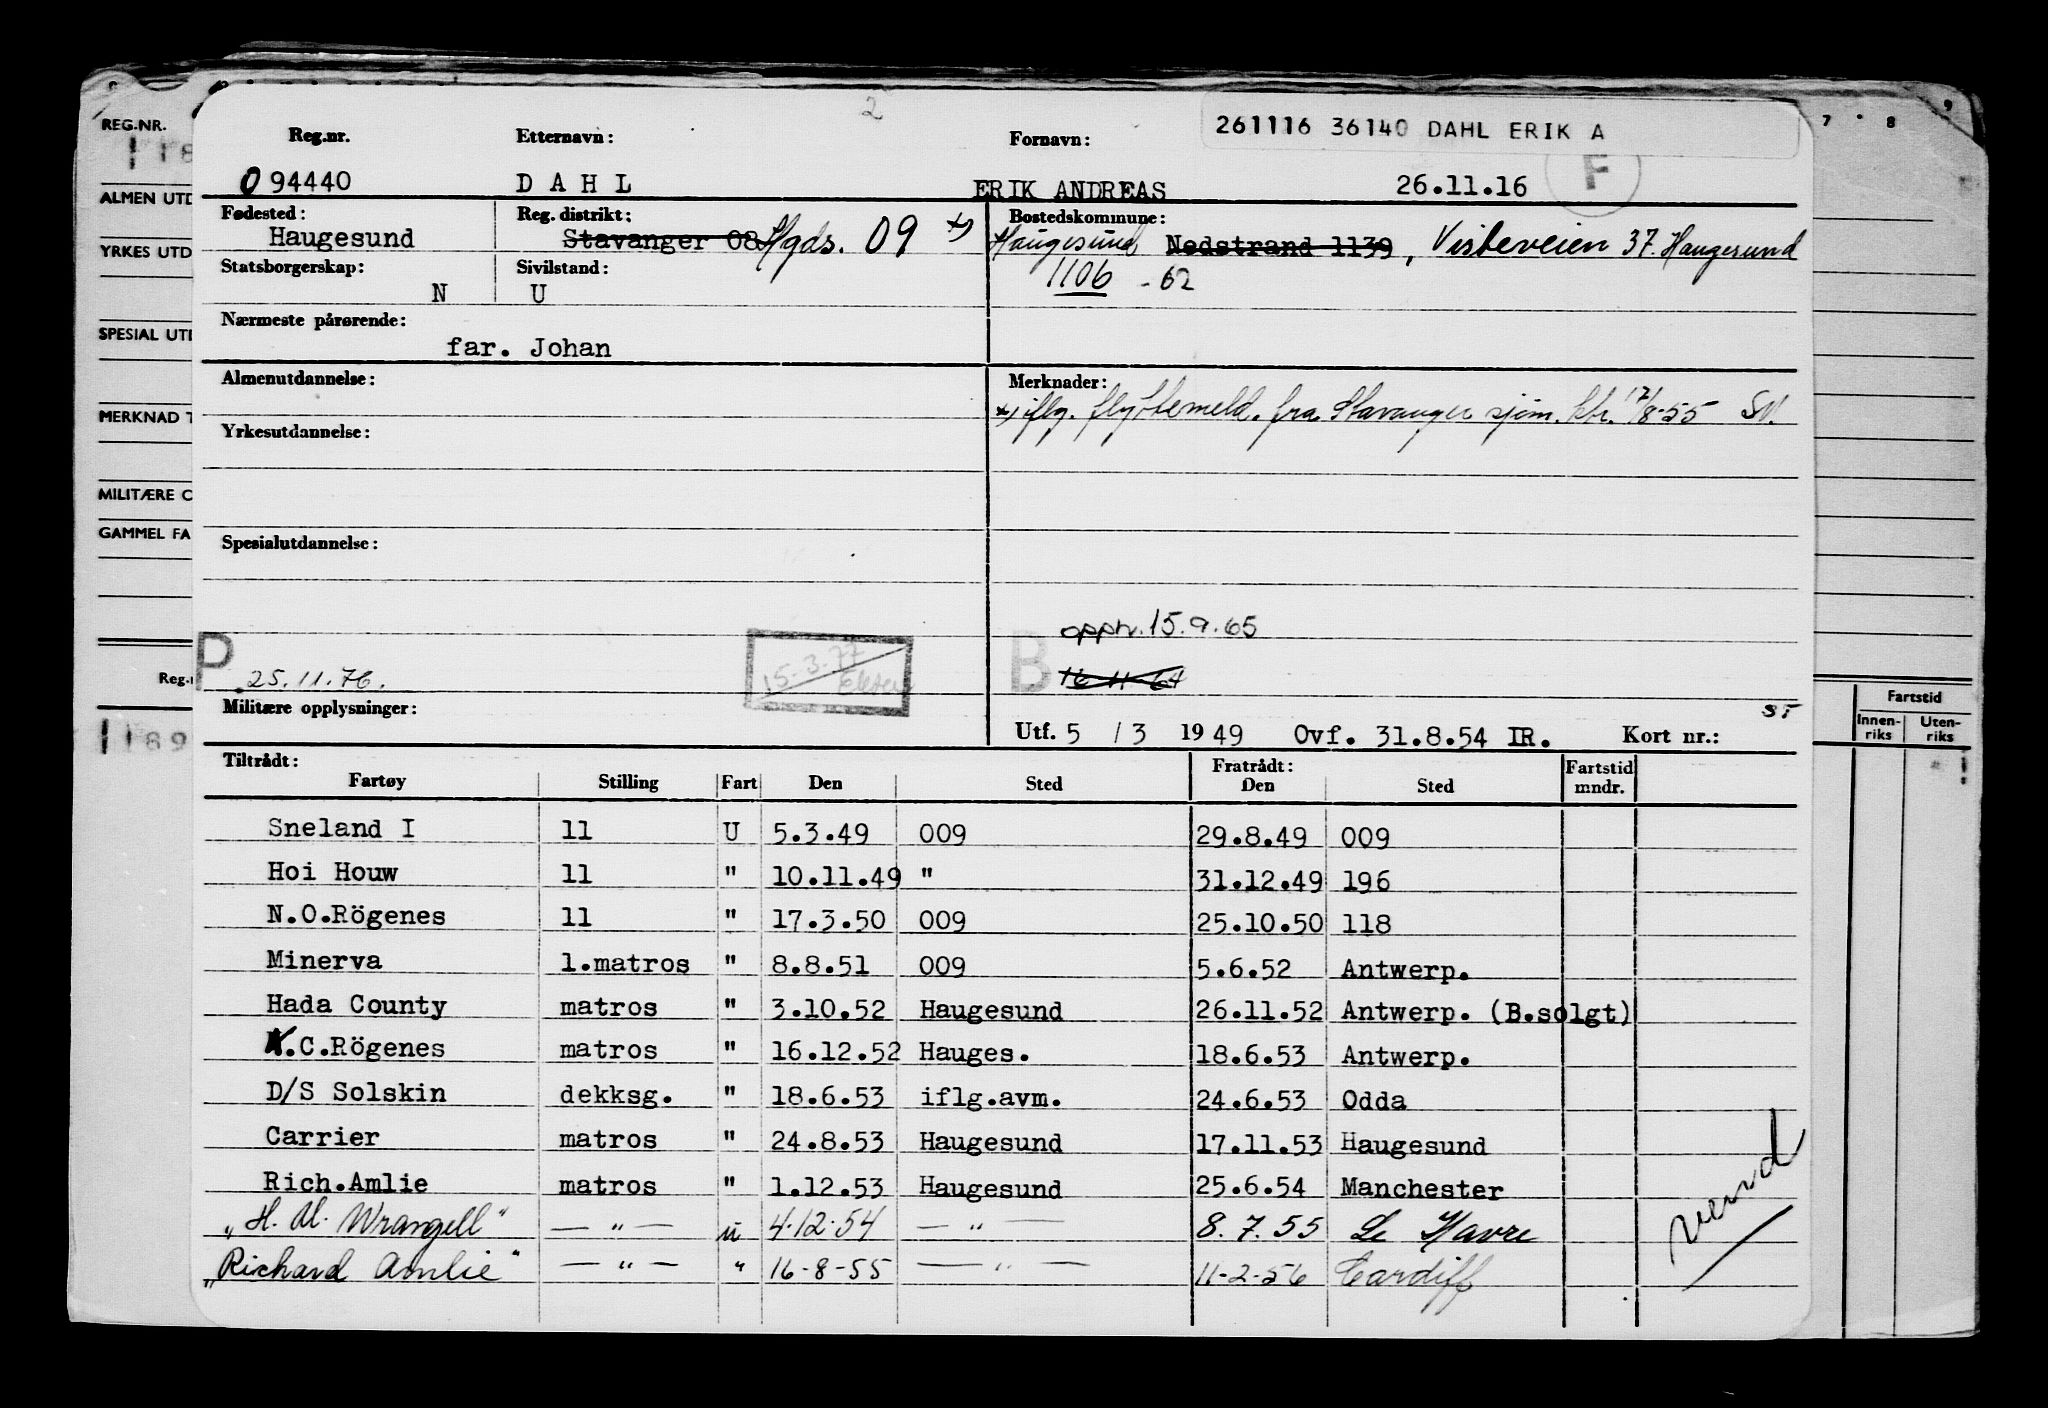 2
REG.NR.
Reg.nr. Etternavn: Fornavn: 261116 36140 DAHL ERIK A
7 8 9
F
094440 D A H L ERIK ANDREAS 26.11.16
ALMEN UTD
Fødested: Reg. distrikt: Bostedskommune:
Haugesund Stavanger 08 Hgds. 09 x) Haugesund Nedstrand 1139, Visbeveien 37. Haugesund
YRKES UTD
Statsborgerskap: Sivilstand: 1106 - 62
N U
Nærmeste pårørende:
SPESIAL UTD
far. Johan
Almenutdannelse: Merknader:
x) iflg. flyttemeld. fra Stavanger sjøm. ktr. 12/8-55 SN.
MERKNAD T
Yrkesutdannelse:
MILITÆRE O
GAMMEL FA
Spesialutdannelse:
opptr. 15.9.65
P 25.11.76. 15-3-77 B 16 11 64
Reg.n
Militære opplysninger:
Utf. 5 / 3 1949 Ovf. 31.8.54 IR. Kort nr.:
Fartstid
Innen-riks Uten-riks
Tiltrådt: Fratrådt: Fartstid
Fartøy Stilling Fart Den Sted Den Sted mndr.
Sneland I 11 U 5.3.49 009 29.8.49 009
Hoi Houw 11 " 10.11.49 " 31.12.49 196
N.O.Rögenes 11 " 17.3.50 009 25.10.50 118
Minerva l.matros " 8.8.51 009 5.6.52 Antwerp.
Hada County matros " 3.10.52 Haugesund 26.11.52 Antwerp. (B.solgt)
K.C.Rögenes matros " 16.12.52 Hauges. 18.6.53 Antwerp.
D/S Solskin dekksg. " 18.6.53 iflg.avm. 24.6.53 Odda
Carrier matros " 24.8.53 Haugesund 17.11.53 Haugesund
Rich.Amlie matros " 1.12.53 Haugesund 25.6.54 Manchester
"H. M. Wrangell" — " — u 4-12-54 — " — 8.7.55 Le Havre
"Richard Amlie" — " — " 16-8-55 — " — 11-2-56 Cardiff
vend